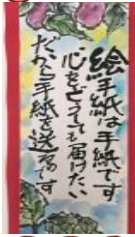 絵手紙は手紙です
心をどうしても届けたい
だから手紙を送るのです